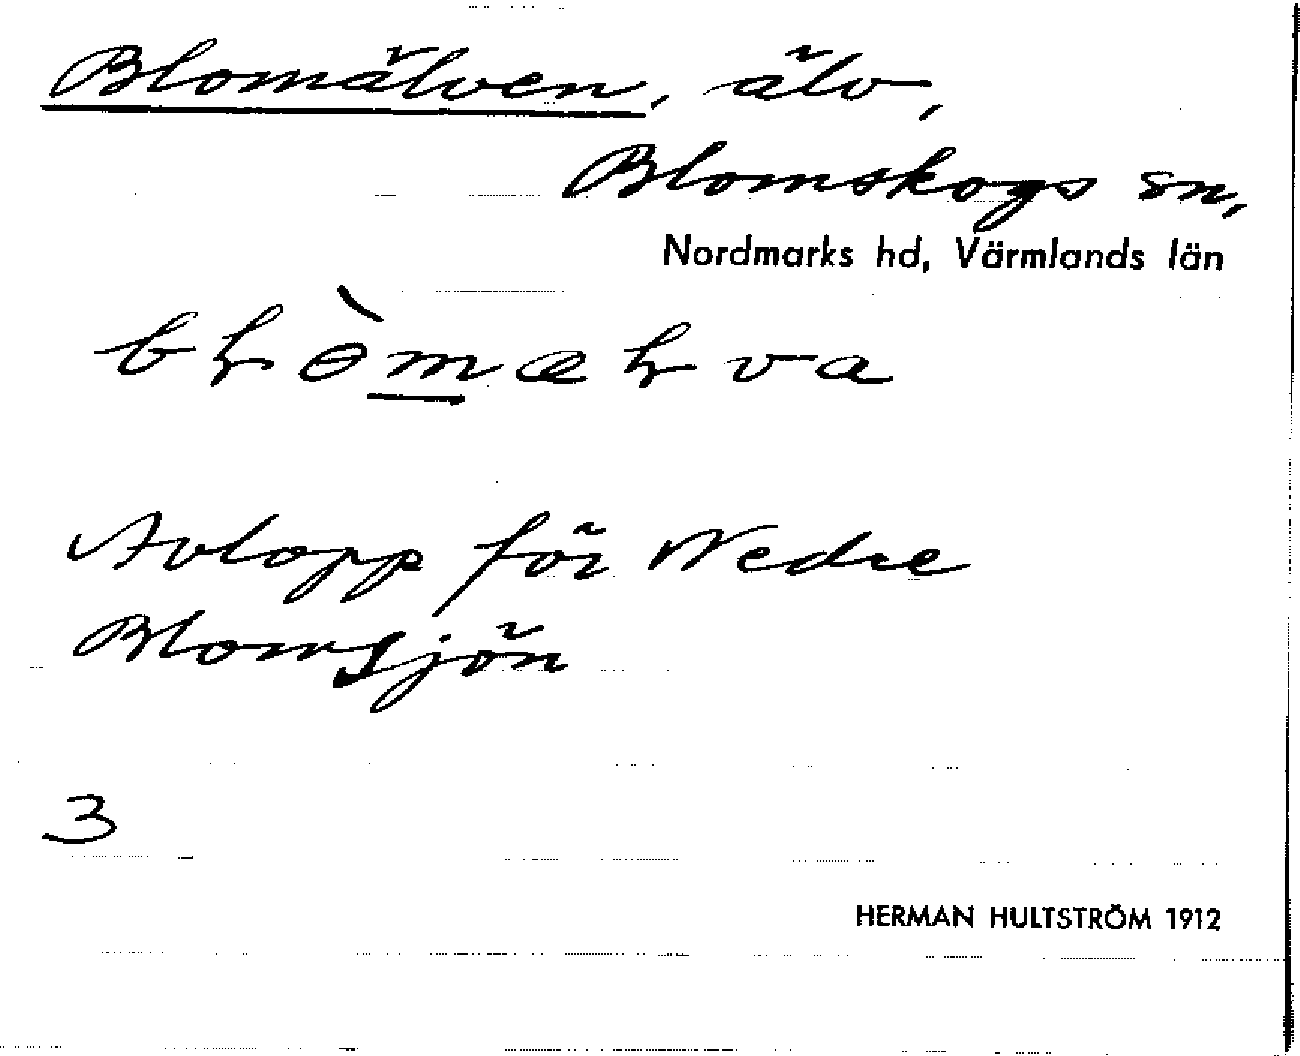 Blomälven, älv,
Blomskogs sn,
Nordmarks hd, Värmlands län
Avlopp för Nedre
Blomsjön
3
HERMAN HULTSTRÖM 1912